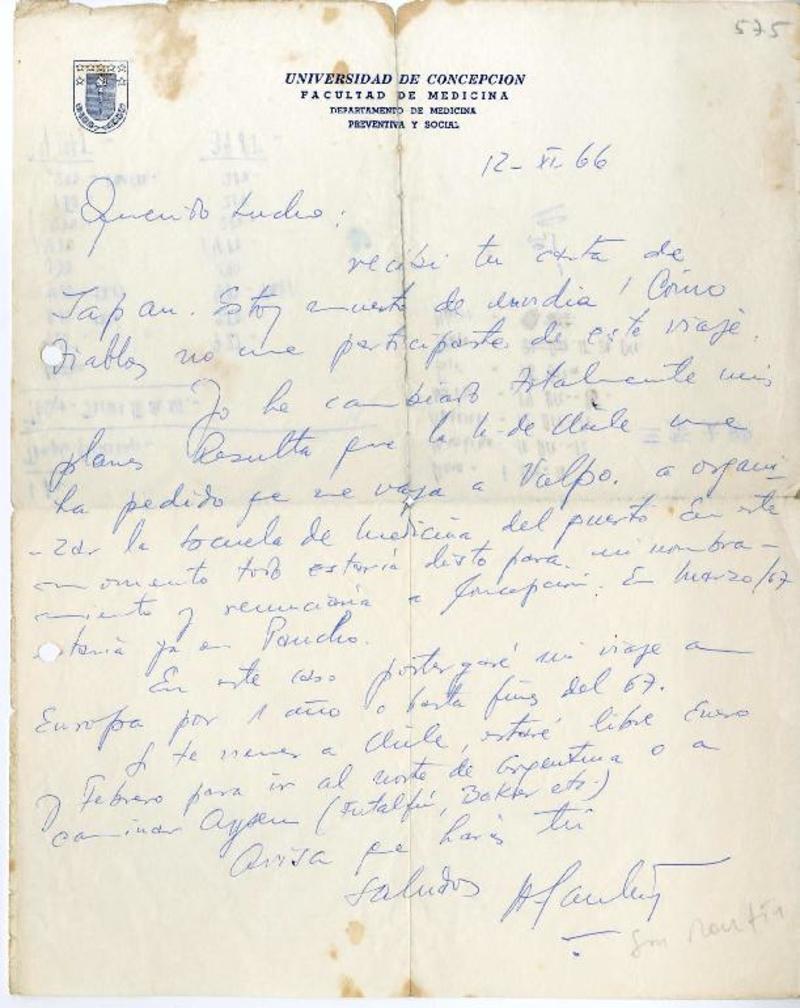 575
UNIVERSIDAD DE CONCEPCION
FACULTAD DE MEDICINA
DEPARTAMENTO DE MEDICINA
PREVENTIVA Y SOCIAL
12-XI-66
Querido Lucho:
recibi tu carta de
Japan. Estoy muerto de envidia! Cómo
diablos no me participaste de este viaje.
Yo he cambiado totalmente mis
planes Resulta que la U. de Chile me
ha pedido qe me vaya a Valpo. a organi-
-zar la Escuela de Medicina del puerto En este
momento todo estaría listo para mi nombra-
miento y renunciaría a Concepción. En Marzo/67
estaría ya en Pancho.
En este caso postergaré mi viaje a
Europa por 1 año o hasta fines del 67.
Si te vienes a Chile, estaré libre Enero
y Febrero para ir al norte de Argentina o a
caminar Aysen (Futalfú, Baker etc.)
Avisa qe harás tú
Saludos
San Martín